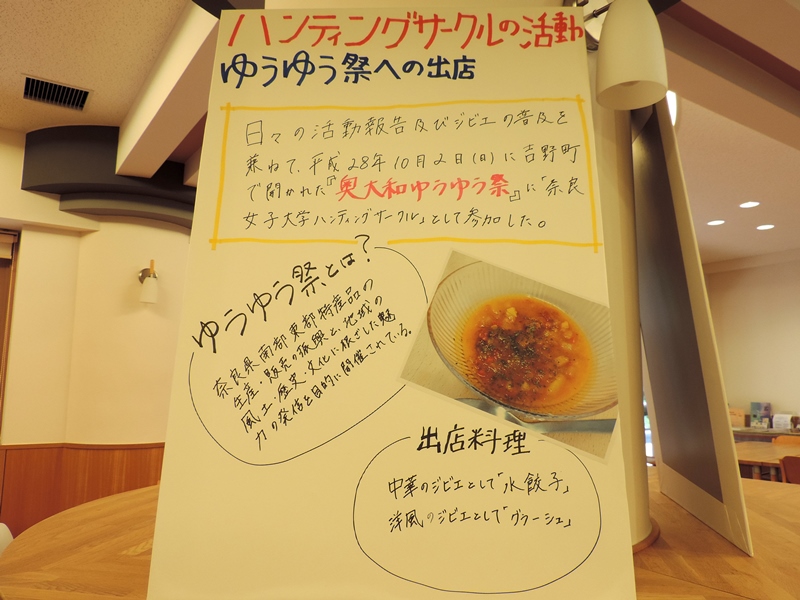 ハンティングサークルの活動
ゆうゆう祭への出店
日々の活動報告及びジビエの普及を
兼ねて、平成28年10月2日(日)に吉野町
で開かれた『奥大和ゆうゆう祭』に「奈良
女子大学ハンティングサークル」として参加した。
ゆうゆう祭とは?
奈良県南部東部特産品の
生産・販売の振興と、地域の
風土・歴史・文化に根ざした魅
力の発信を目的に開催されている。
出店料理
中華のジビエとして「水餃子」
洋風のジビエとして「グラーシュ」